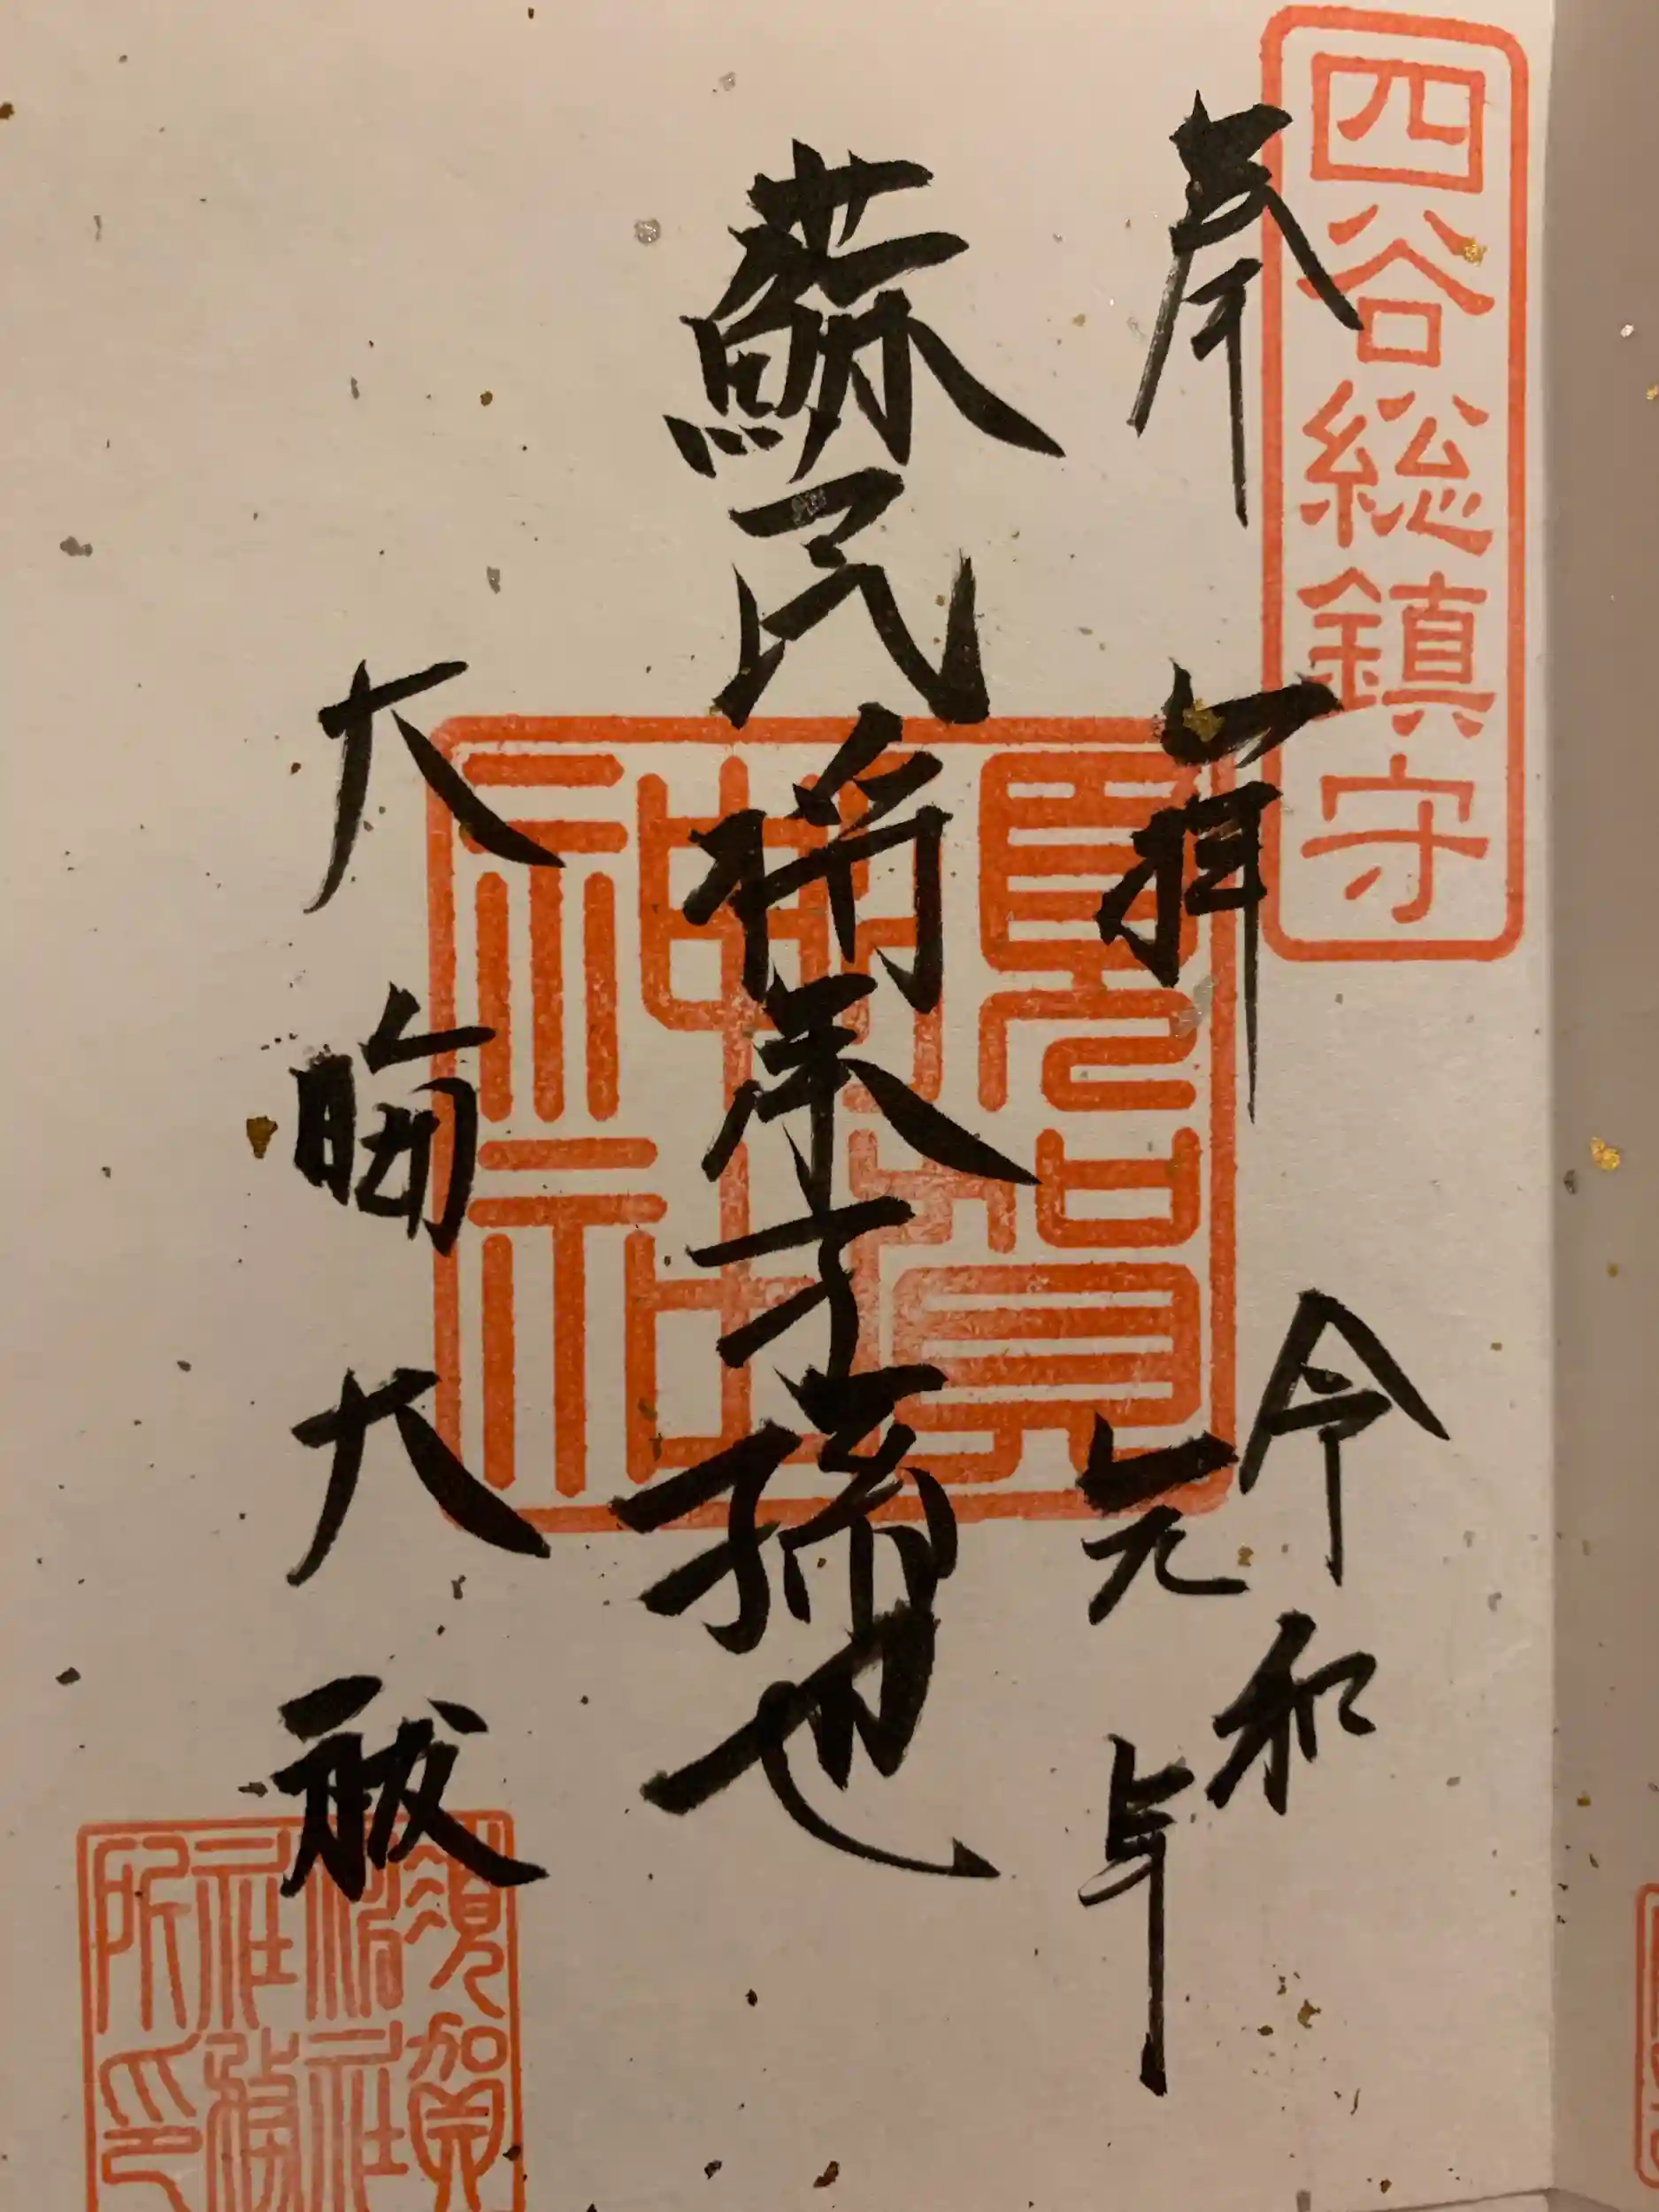 四谷総鎮守
奉拝
令和
元年
蘇民将来子孫也
須賀
神社
大晦大祓
須賀
神社
社務
所印